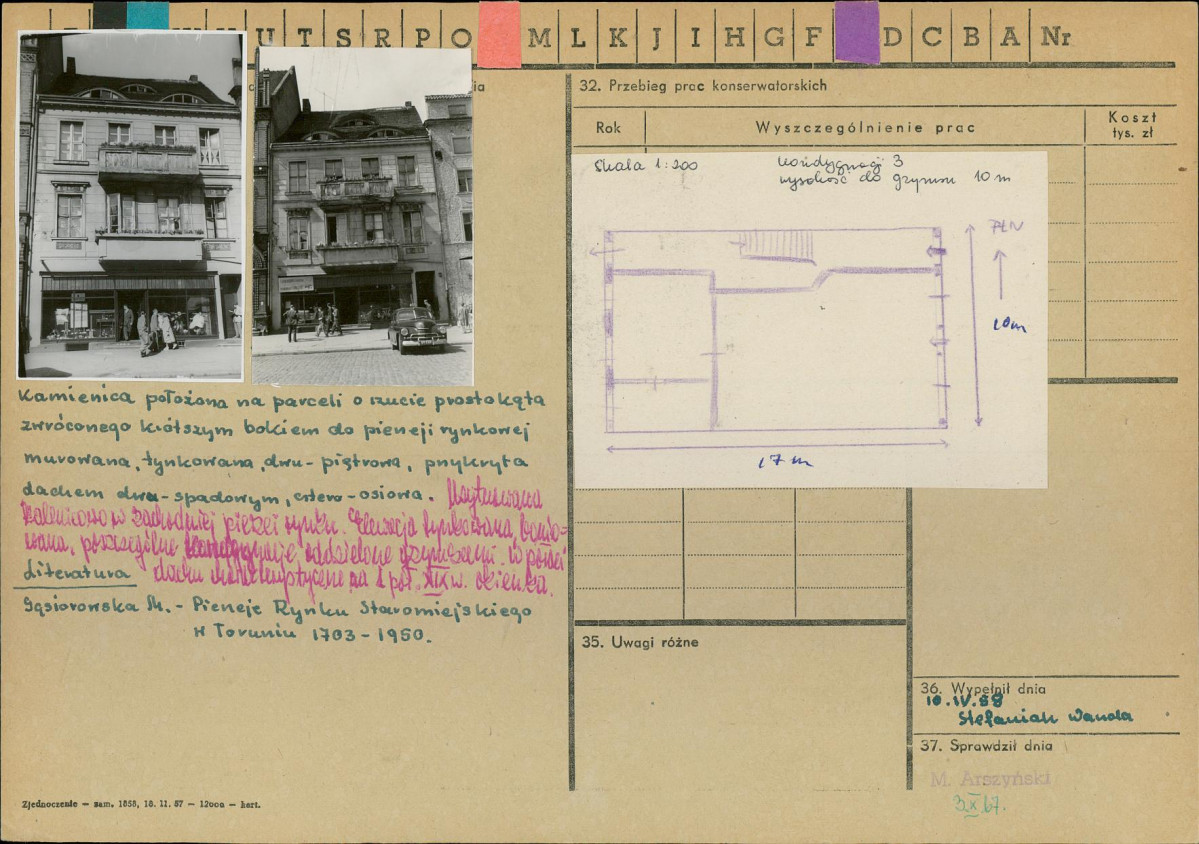 U T S R P O M L K J I H G F D C B A Nr
ia
32. Przebieg prac konserwatorskich
Rok
Wyszczególnienie prac
Koszt
tys. zł
Skala 1:200
kondygnacji 3
wysokość do gzymsu 10 m
PŁN
10 m
17 m
Kamienica położona na parceli o rzucie prostokąta
zwróconego krótszym bokiem do pierzeji rynkowej
murowana, tynkowana, dwu-piętrowa, przykryta
dachem dwu-spadowym, cztero-osiowa. Usytuowana
kalenicowo w zachodniej pierzei rynku. Elewacja tynkowana, bonio-
wana, poszczególne kondygnacje oddzielone gzymsami. W połaci
Literatura dachu charakterystyczne na 2 poł. XIX w. okienka.
Gąsiorowska M. - Pierzeje Rynku Staromiejskiego
w Toruniu 1703-1950.
35. Uwagi różne
36. Wypełnił dnia
10.IV.59
Stefaniak Wanda
37. Sprawdził dnia
M. Arszyński
3.X.67.
Zjednoczenie — zam. 1858, 18. 11. 57 — 12000 — kart.